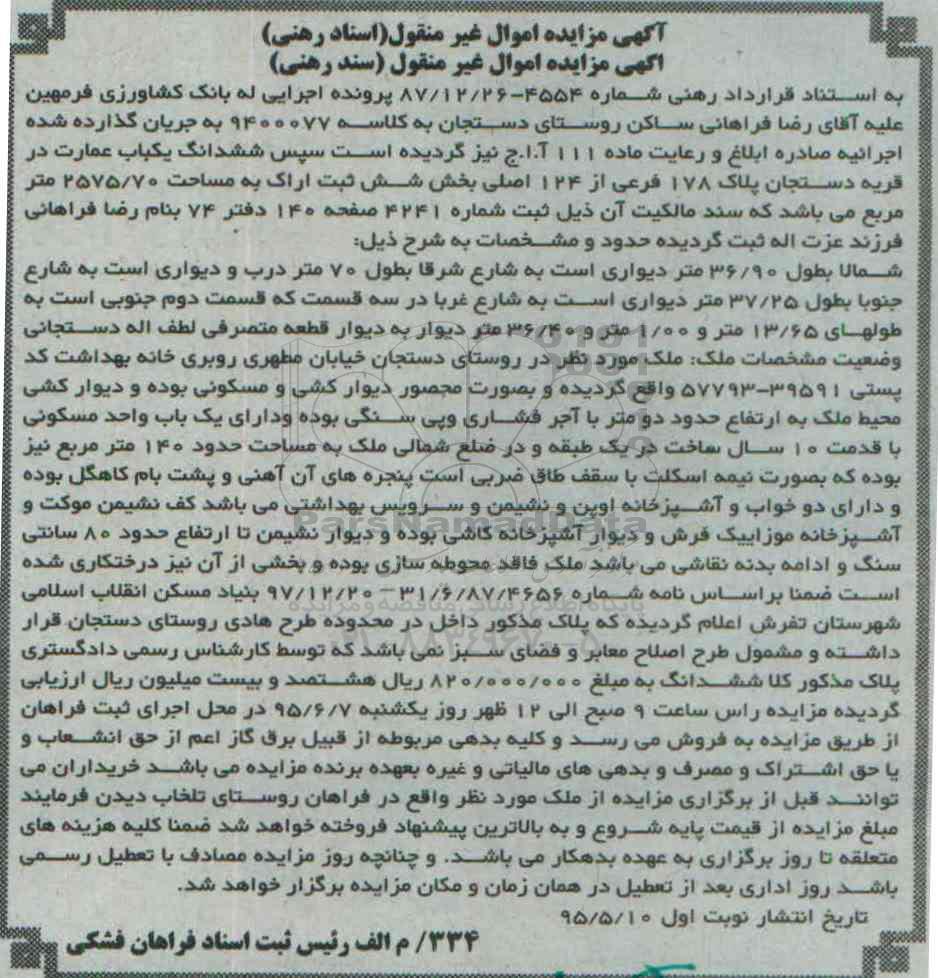 آگهی مزایده اموال غیر منقول(اسناد رهنی)
اگهی مزایده اموال غیر منقول (سند رهنی)
به استناد قرارداد رهنی شماره ۴۵۵۴-۸۷/۱۲/۲۶ پرونده اجرایی له بانک کشاورزی فرمهین
علیه آقای رضا فراهانی ساکن روستای دستجان به کلاسه ۹۴۰۰۰۷۷ به جریان گذارده شده
اجرائیه صادره ابلاغ و رعایت ماده ۱۱۱ آ.ا.ج نیز گردیده است سپس ششدانگ یکباب عمارت در
قریه دستجان پلاک ۱۷۸ فرعی از ۱۲۴ اصلی بخش شش ثبت اراک به مساحت ۲۵۷۵/۷۰ متر
مربع می باشد که سند مالکیت آن ذیل ثبت شماره ۴۲۴۱ صفحه ۱۴۰ دفتر ۷۴ بنام رضا فراهانی
فرزند عزت اله ثبت گردیده حدود و مشخصات به شرح ذیل:
شمالا بطول ۳۶/۹۰ متر دیواری است به شارع شرقا بطول ۷۰ متر درب و دیواری است به شارع
جنوبا بطول ۳۷/۲۵ متر دیواری است به شارع غربا در سه قسمت که قسمت دوم جنوبی است به
طولهای ۱۳/۶۵ متر و ۱/۰۰ متر و ۳۶/۴۰ متر دیوار به دیوار قطعه متصرفی لطف اله دستجانی
وضعیت مشخصات ملک: ملک مورد نظر در روستای دستجان خیابان مطهری روبری خانه بهداشت کد
پستی ۳۹۵۹۱-۵۷۷۹۳ واقع گردیده و بصورت محصور دیوار کشی و مسکونی بوده و دیوار کشی
محیط ملک به ارتفاع حدود دو متر با آجر فشاری وپی سنگی بوده ودارای یک باب واحد مسکونی
با قدمت ۱۰ سال ساخت در یک طبقه و در ضلع شمالی ملک به مساحت حدود ۱۴۰ متر مربع نیز
بوده که بصورت نیمه اسکلت با سقف طاق ضربی است پنجره های آن آهنی و پشت بام کاهگل بوده
و دارای دو خواب و آشپزخانه اوپن و نشیمن و سرویس بهداشتی می باشد کف نشیمن موکت و
آشپزخانه موزاییک فرش و دیوار آشپزخانه کاشی بوده و دیوار نشیمن تا ارتفاع حدود ۸۰ سانتی
سنگ و ادامه بدنه نقاشی می باشد ملک فاقد محوطه سازی بوده و بخشی از آن نیز درختکاری شده
است ضمنا براساس نامه شماره ۳۱/۶/۸۷/۴۶۵۶-۹۷/۱۲/۲۰ بنیاد مسکن انقلاب اسلامی
شهرستان تفرش اعلام گردیده که پلاک مذکور داخل در محدوده طرح هادی روستای دستجان قرار
داشته و مشمول طرح اصلاح معابر و فضای سبز نمی باشد که توسط کارشناس رسمی دادگستری
پلاک مذکور کلا ششدانگ به مبلغ ۸۲۰/۰۰۰/۰۰۰ ریال هشتصد و بیست میلیون ریال ارزیابی
گردیده مزایده راس ساعت ۹ صبح الی ۱۲ ظهر روز یکشنبه ۹۵/۶/۷ در محل اجرای ثبت فراهان
از طریق مزایده به فروش می رسد و کلیه بدهی مربوطه از قبیل برق گاز اعم از حق انشعاب و
یا حق اشتراک و مصرف و بدهی های مالیاتی و غیره بعهده برنده مزایده می باشد خریداران می
توانند قبل از برگزاری مزایده از ملک مورد نظر واقع در فراهان روستای تلخاب دیدن فرمایند
مبلغ مزایده از قیمت پایه شروع و به بالاترین پیشنهاد فروخته خواهد شد ضمنا کلیه هزینه های
متعلقه تا روز برگزاری به عهده بدهکار می باشد. و چنانچه روز مزایده مصادف با تعطیل رسمی
باشد روز اداری بعد از تعطیل در همان زمان و مکان مزایده برگزار خواهد شد.
تاریخ انتشار نوبت اول ۹۵/۵/۱۰
۳۳۴/ م الف رئیس ثبت اسناد فراهان فشکی
ParsNamadData
پایگاه اطلاع رسانی مناقصه و مزایده